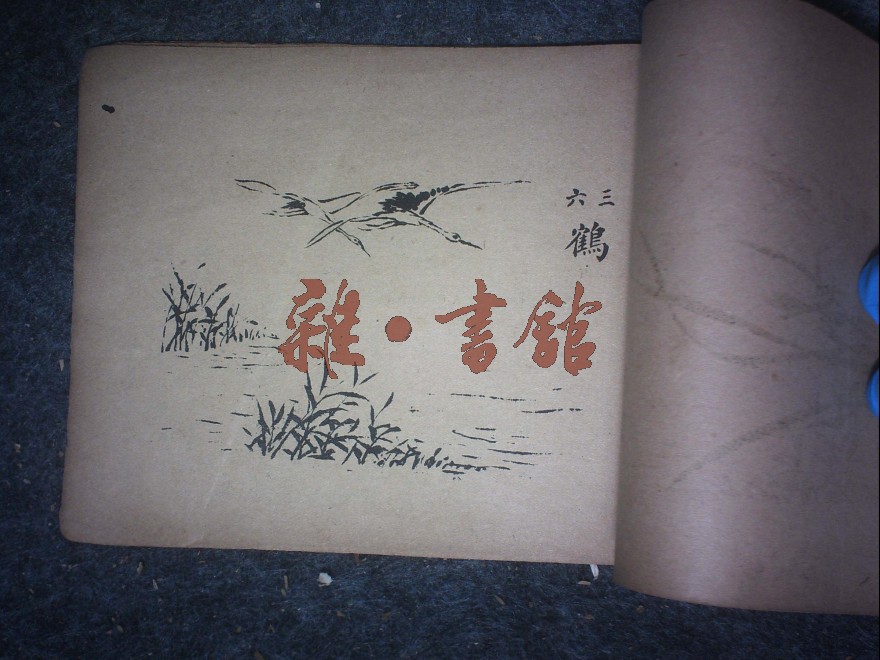 三六
鶴
雜·書館